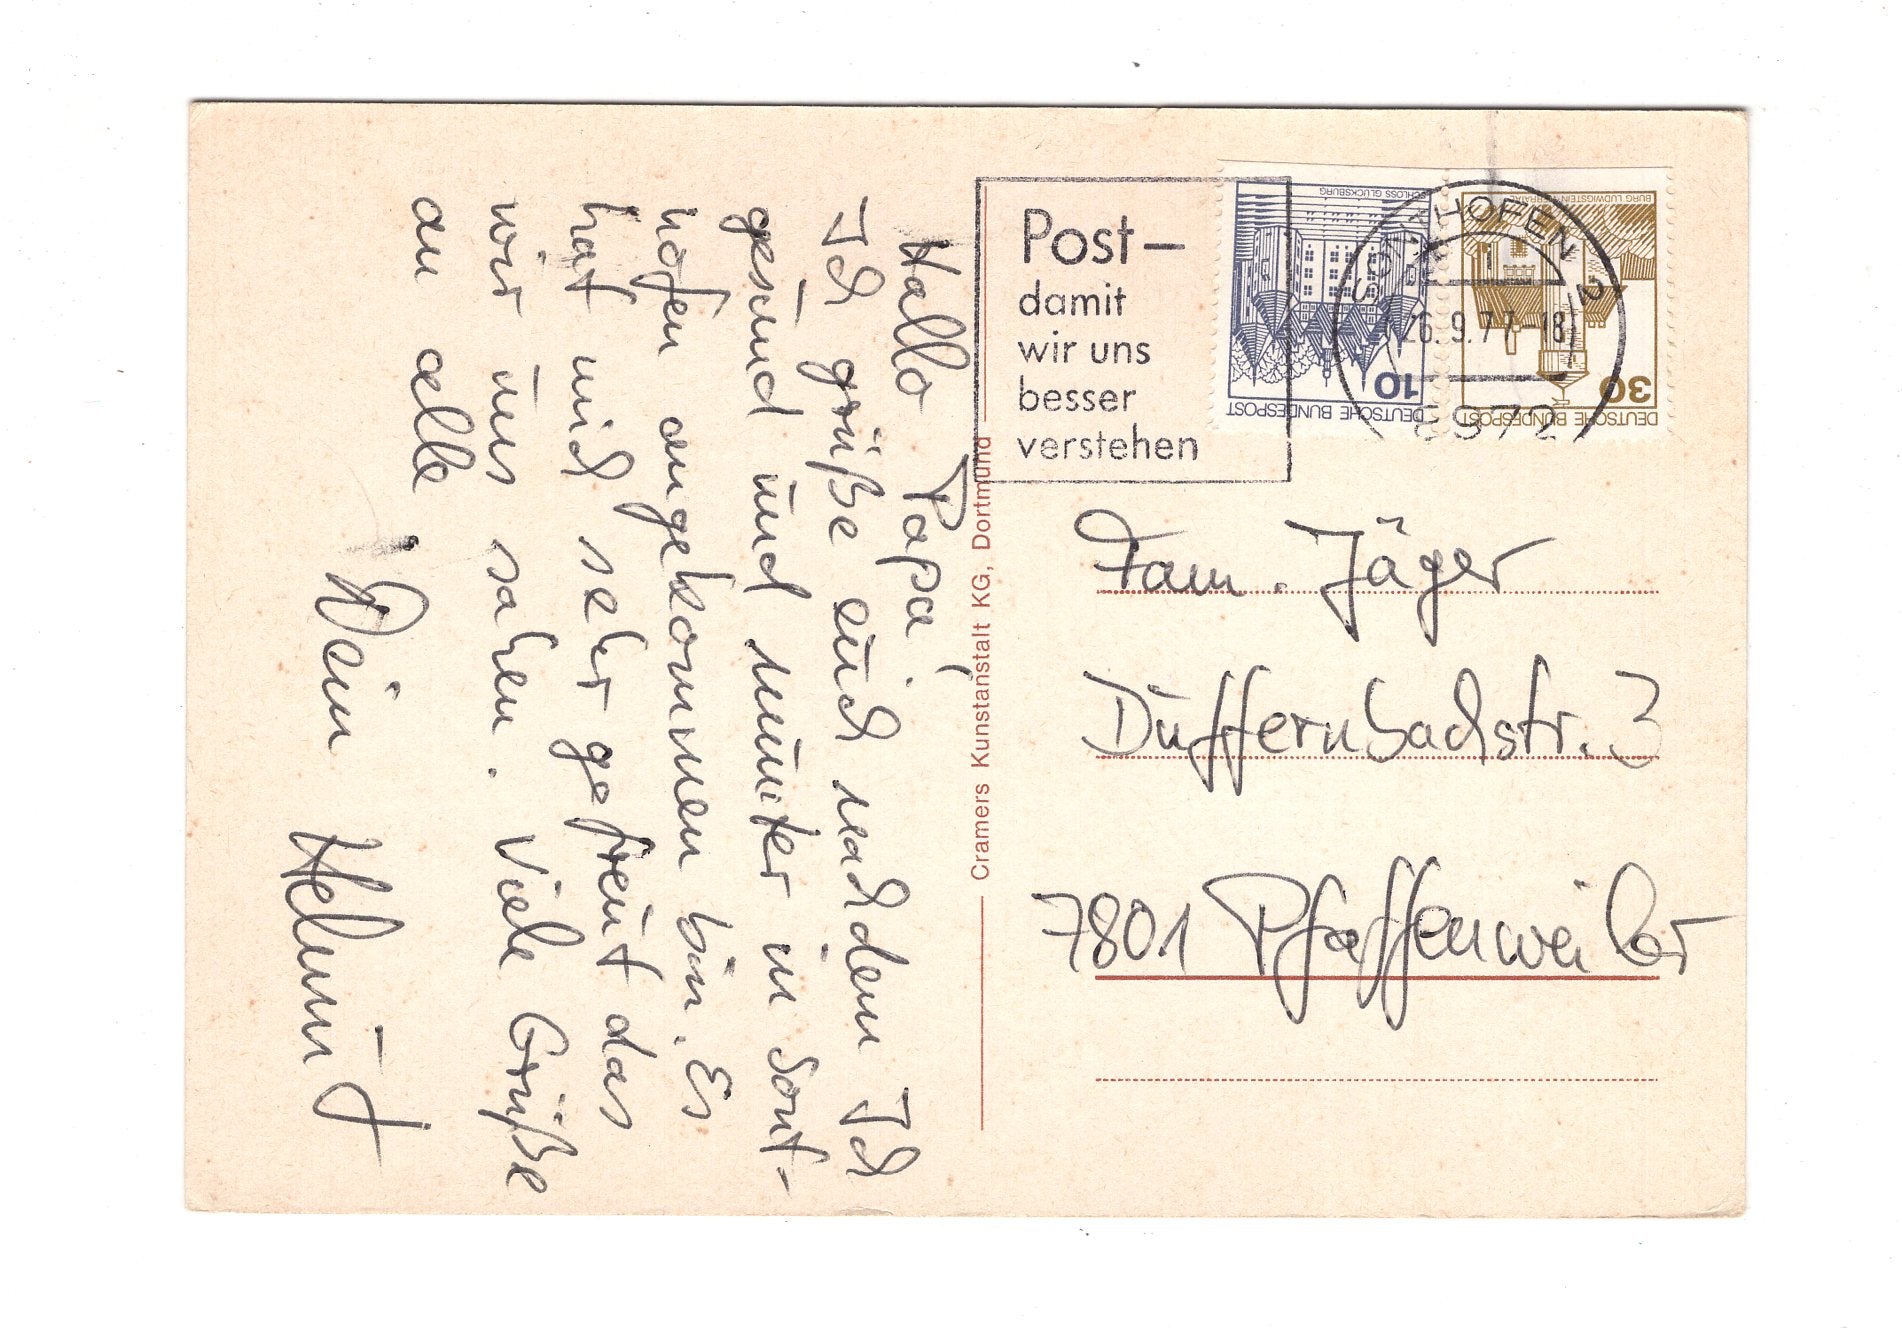 Hallo Papa!
Ich grüße euch nachdem Ich
gesund und munter in Sont-
hofen angekommen bin. Es
hat mich sehr gefreut das
wir uns sahen. Viele Grüße
an alle.
Dein Helmut
Cramers Kunstanstalt KG, Dortmund
Post –
damit
wir uns
besser
verstehen
SCHLOSS GLÜCKSBURG
10
DEUTSCHE BUNDESPOST
BURG LUDWIGSTEIN WERRATAL
30
DEUTSCHE BUNDESPOST
SONTHOFEN 2
26.9.77-18
8972
Fam. Jäger
Duffernbachstr. 3
7801 Pfaffenweiler